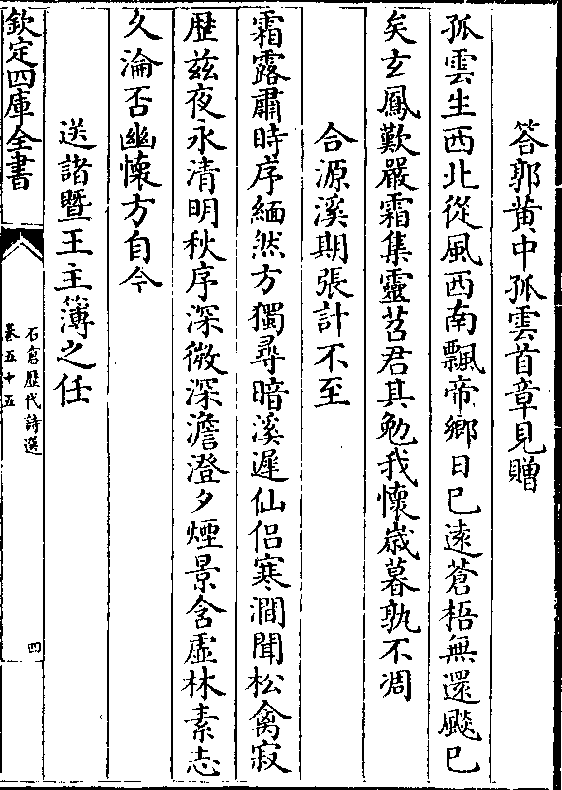 答郭黄中孤雲首章見贈
孤雲生西北從風西南飄帝鄉日已逺蒼梧無還飈已
矣玄鳳歎嚴霜集靈苕君其勉我懷嵗暮孰不凋
合源溪期張計不至
霜露肅時序緬然方獨尋暗溪遲仙侣寒澗聞松禽寂
厯兹夜永清明秋序深微深澹澄夕煙景含虚林素志
久淪否幽懷方自今
送諸暨王主簿之任
欽定四庫全書
石倉厯代詩選
卷五十五
四